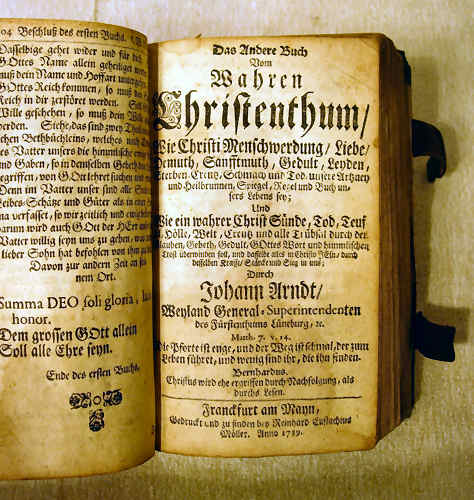 04 Beschluß des ersten Buchs.
Dasselbige gehet wider und für dich
GOttes Name allein geheiliget werden
muß dein Name und Hoffart untergehen
GOttes Reich kommen, so muß des
Reich in dir zerstöret werden. Soll
Wille geschehen, so muß dein Wille
werden. Siehe, das sind zwey Theile
chen Bethbüchleins, welches und
es Vatter unsers die himmlische
und Gaben, so in demselben Gebeth
egriffen, von GOtt lehret suchen
Denn im Vatter unser sind alle
Leibes-Schätze und Güter als in einer
ma verfasset, so wir zeitlich und ewig
darum wird auch GOtt der HErr
Vatter willig seyn uns zu geben, was
lieber Sohn hat befohlen von ihm zu
Davon zur andern Zeit an
nem Ort.
Summa DEO soli gloria,
honor.
Dem grossen GOtt allein
Soll alle Ehre seyn.
Ende des ersten Buchs.
Das Andere Buch
Vom
Wahren
Christenthum/
Wie Christi Menschwerdung/ Liebe/
Demuth, Sanfftmuth, Gedult, Leyden,
Sterben, Creutz, Schmach und Tod, unsere Artzney
und Heilbrunnen, Spiegel, Regel und Buch un-
sers Lebens sey;
Und
Wie ein wahrer Christ Sünde, Tod, Teuf
Hölle, Welt, Creutz und alle Trübsal durch den
Glauben, Gebeth, Gedult, GOttes Wort und himmlischen
Trost überwinden soll, und dasselbe alles in Christo JEsu, durch
desselben Krafft, Stärcke und Sieg in uns;
Durch
Johann Arndt/
Weyland General-Superintendenten
des Fürstenthums Lüneburg, ꝛc.
Matth. 7. v. 14.
Die Pforte ist enge, und der Weg ist schmal, der zum
Leben führet, und wenig sind ihr, die ihn finden.
Bernhardus.
Christus wird ehe ergriffen durch Nachfolgung, als
durchs Lesen.
Franckfurt am Mayn,
Gedruckt und zu finden bey Reinhard Eustachius
Möller. Anno 1739.